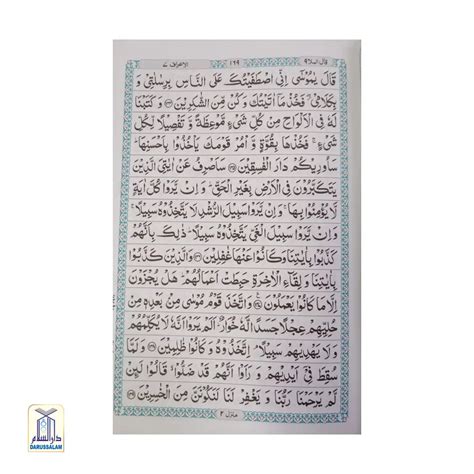 قال الملا ٩ ١٦٩ الاعراف ٧
قَالَ يٰمُوْسٰۤى اِنِّى اصْطَفَيْتُكَ عَلَى النَّاسِ بِرِسٰلٰتِىْ وَ
بِكَلَامِىْ فَخُذْ مَاۤ اٰتَيْتُكَ وَ كُنْ مِّنَ الشّٰكِرِيْنَ ﴿۱۴۴﴾ وَ كَتَبْنَا
لَهٗ فِى الْاَلْوَاحِ مِنْ كُلِّ شَىْءٍ مَّوْعِظَةً وَّ تَفْصِيْلًا لِّكُلِّ
شَىْءٍ ۚ فَخُذْهَا بِقُوَّةٍ وَّ اْمُرْ قَوْمَكَ يَاْخُذُوْا بِاَحْسَنِهَا ؕ
سَاُورِيْكُمْ دَارَ الْفٰسِقِيْنَ ﴿۱۴۵﴾ سَاَصْرِفُ عَنْ اٰيٰتِىَ الَّذِيْنَ
يَتَكَبَّرُوْنَ فِى الْاَرْضِ بِغَيْرِ الْحَقِّ ؕ وَ اِنْ يَّرَوْا كُلَّ اٰيَةٍ
لَّا يُؤْمِنُوْا بِهَا ۚ وَ اِنْ يَّرَوْا سَبِيْلَ الرُّشْدِ لَا يَتَّخِذُوْهُ سَبِيْلًا ۚ
وَ اِنْ يَّرَوْا سَبِيْلَ الْغَىِّ يَتَّخِذُوْهُ سَبِيْلًا ؕ ذٰلِكَ بِاَنَّهُمْ
كَذَّبُوْا بِاٰيٰتِنَا وَ كَانُوْا عَنْهَا غٰفِلِيْنَ ﴿۱۴۶﴾ وَ الَّذِيْنَ كَذَّبُوْا
بِاٰيٰتِنَا وَ لِقَآءِ الْاٰخِرَةِ حَبِطَتْ اَعْمَالُهُمْ ؕ هَلْ يُجْزَوْنَ
اِلَّا مَا كَانُوْا يَعْمَلُوْنَ ﴿۱۴۷﴾ وَ اتَّخَذَ قَوْمُ مُوْسٰى مِنْۢ بَعْدِهٖ مِنْ
حُلِيِّهِمْ عِجْلًا جَسَدًا لَّهٗ خُوَارٌ ؕ اَلَمْ يَرَوْا اَنَّهٗ لَا يُكَلِّمُهُمْ
وَ لَا يَهْدِيْهِمْ سَبِيْلًا ۘ اِتَّخَذُوْهُ وَ كَانُوْا ظٰلِمِيْنَ ﴿۱۴۸﴾ وَ لَمَّا
سُقِطَ فِىْۤ اَيْدِيْهِمْ وَ رَاَوْا اَنَّهُمْ قَدْ ضَلُّوْا ۙ قَالُوْا لَئِنْ
لَّمْ يَرْحَمْنَا رَبُّنَا وَ يَغْفِرْ لَنَا لَنَكُوْنَنَّ مِنَ الْخٰسِرِيْنَ ﴿۱۴۹﴾
منزل ٢
دار السلام
DARUSSALAM